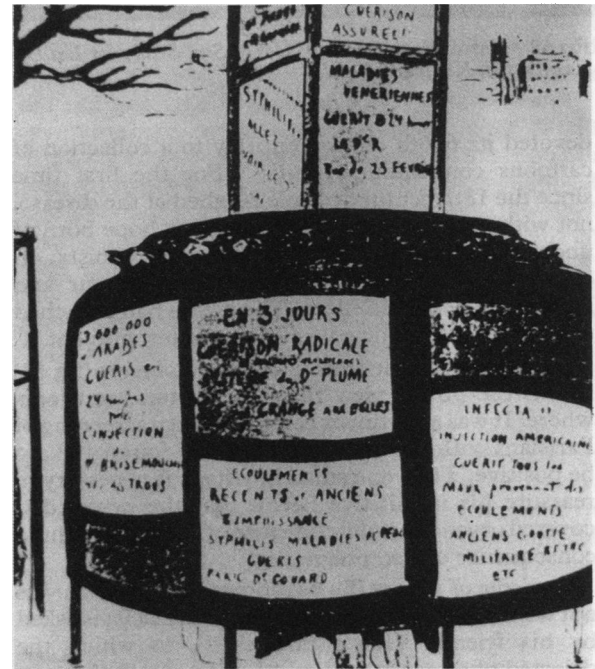 GUERISON
ASSUREE!
SYPHILI
ALLEZ
VOIR LE
MALADIES
VENERIENNES
GUERIT EN 24
LE Dr R
Rue du 23 FEVRIER
3 000 000
d'ARABES
GUERIS en
24 heures
par
L'INJECTION
du
Dr BRISEMOU
rue des TROUS
EN 3 JOURS
GUERISON RADICALE
SYSTEME du Dr PLUME
GRANGE AUX BELLES
ECOULEMENTS
RECENTS et ANCIENS
IMPUISSANCE
SYPHILIS MALADIES DE PEAU
GUERIS
PAR LE Dr COUARD
INFECTA
INJECTION AMERICAINE
GUERIT TOUS les
MAUX provenant des
ECOULEMENTS
ANCIENS GOUTTE
MILITAIRE
etc